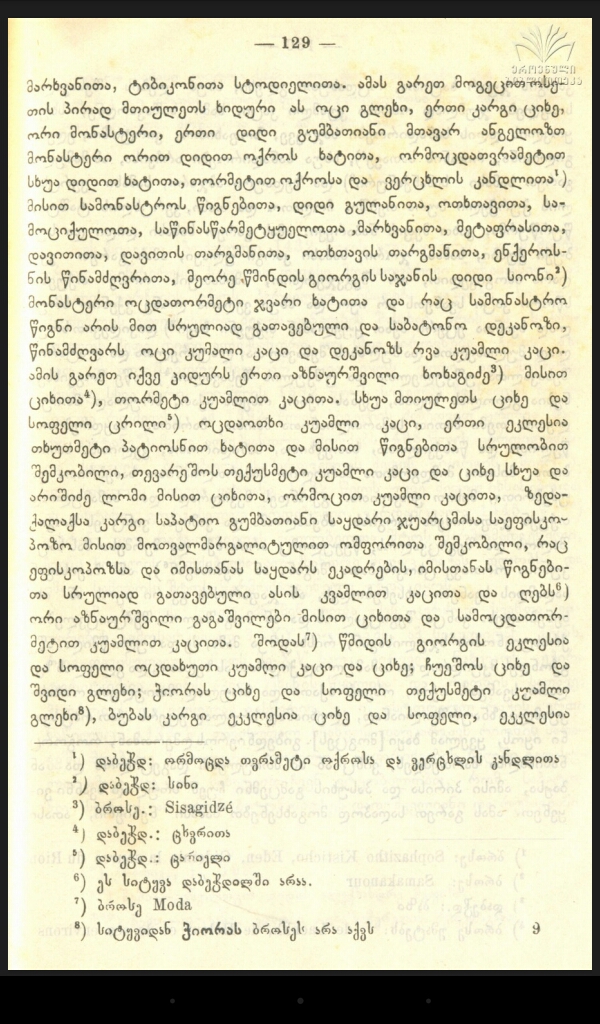 — 129 —
მარხვანითა, ტიბიკონითა სტოდიელითა. ამას გარეთ მოგეცითოსე-
თის პირად მთიულეთს ხიდური ას ოცი გლეხი, ერთი კარგი ციხე,
ორი მონასტერი, ერთი დიდი გუმბათიანი მთავარ ანგელოზთ
მონასტერი ორით დიდით ოქროს ხატითა, ორმოცდათვრამეტით
სხუა დიდით ხატითა, თორმეტით ოქროსა და ვერცხლის კანდლითა¹)
მისით სამონასტროს წიგნებითა, დიდი გულანითა, ოთხთავითა, სა-
მოციქულოთა, საწინასწარმეტყუელოთა ,მარხვანითა, მეტაფრასითა,
დავითითა, დავითის თარგმანითა, ოთხთავის თარგმანითა, ენქეროს-
ნის წინამძღვრითა, მეორე წმინდის გიორგის საჯანის დიდი სიონი²)
მონასტერი ოცდათორმეტი ჯვარი ხატითა და რაც სამონასტრო
წიგნი არის მით სრულიად გათავებული და საბატონო დეკანოზი,
წინამძღვარს ოცი კუმალი კაცი და დეკანოზს რვა კუამლი კაცი.
ამის გარეთ იქვე კიდურს ერთი აზნაურშვილი ხოხაგიძე³) მისით
ციხითა⁴), თორმეტი კუამლით კაცითა. სხუა მთიულეთს ციხე და
სოფელი ცრილი⁵) ოცდაოთხი კუამლი კაცი, ერთი ეკლესია
თხუთმეტი პატიოსნით ხატითა და მისით წიგნებითა სრულობით
შემკობილი, თევარეშოს თექუსმეტი კუამლი კაცი და ციხე სხუა და
არიშიძე ლომი მისით ციხითა, ორმოცით კუამლი კაცითა, ზედა-
ქალაქსა კარგი საპატიო გუმბათიანი საყდარი ჯუარცმისა საეფისკო-
პოზო მისით მოთვალმარგალიტულით ომფორითა შემკობილი, რაც
ეფისკოპოზსა და იმისთანას საყდარს ეკადრების, იმისთანას წიგნები-
თა სრულიად გათავებული ასის კვამლით კაცითა და ღებს⁶)
ორი აზნაურშვილი გაგაშვილები მისით ციხითა და სამოცდათორ-
მეტით კუამლით კაცითა. შოდას⁷) წმიდის გიორგის ეკლესია
და სოფელი ოცდახუთი კუამლი კაცი და ციხე; ჩუეშოს ციხე და
შვიდი გლეხი; ჭიორას ციხე და სოფელი თექუსმეტი კუამლი
გლეხი⁸), ბუბას კარგი ეკკლესია ციხე და სოფელი, ეკკლესია
¹) დაბეჭდ: ორმოცდა თვრამეტი ოქროსა და ვერცხლის კანდლითა
²) დაბეჭდ: სინი
³) ბროსე.: Sisagidzé
⁴) დაბეჭდ.: ცხვრითა
⁵) დაბეჭდ.: ცარიელი
⁶) ეს სიტყვა დაბეჭდილში არაა.
⁷) ბროსე Moda
⁸) სიტყვიდან ჭიორას ბროსეს არა აქვს
9